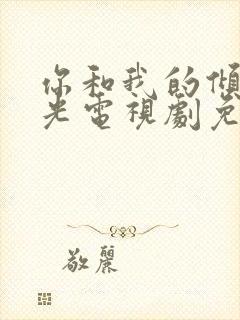 你和我的傾
光電視劇免
敬麗